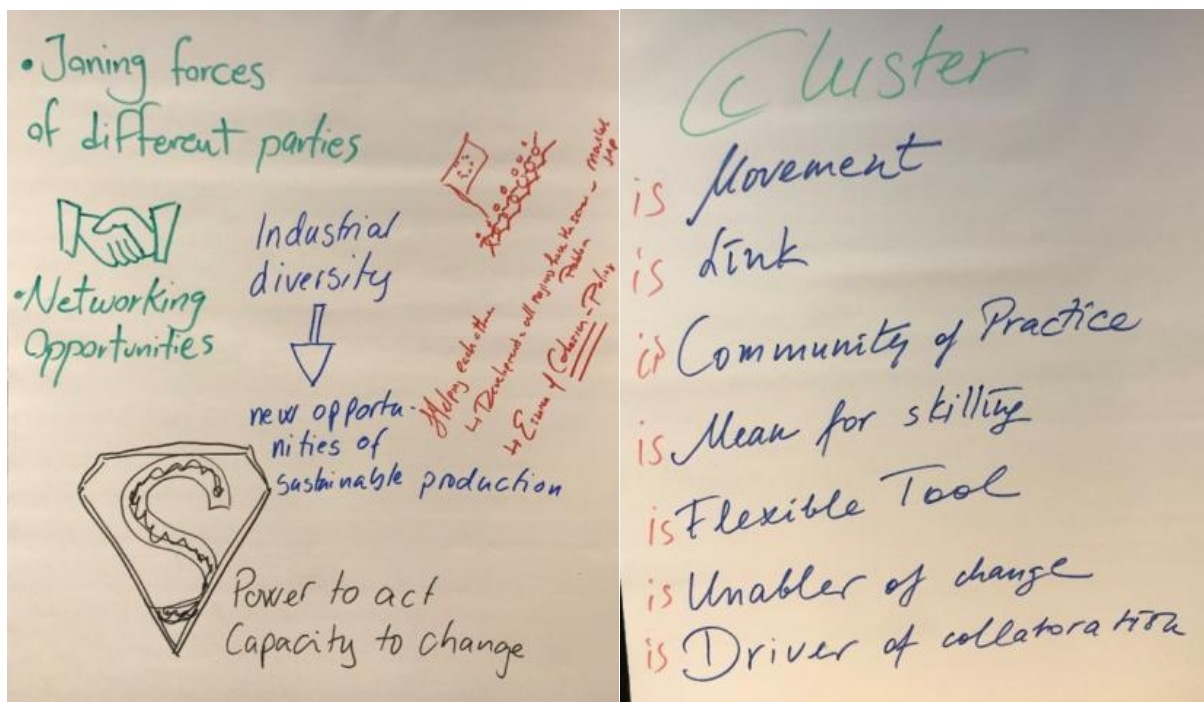 • Janing forces
of different parties
• Networking
Opportunities
Industrial
diversity
new opportu-
nities of
sustainable production
Helping each other
↳ Development - all regions have the same
Problem
↳ of Cohesion - Policy
S
Power to act
Capacity to change
Cluster
is Movement
is Link
is Community of Practice
is Mean for skilling
is Flexible Tool
is Unabler of change
is Driver of collaboration